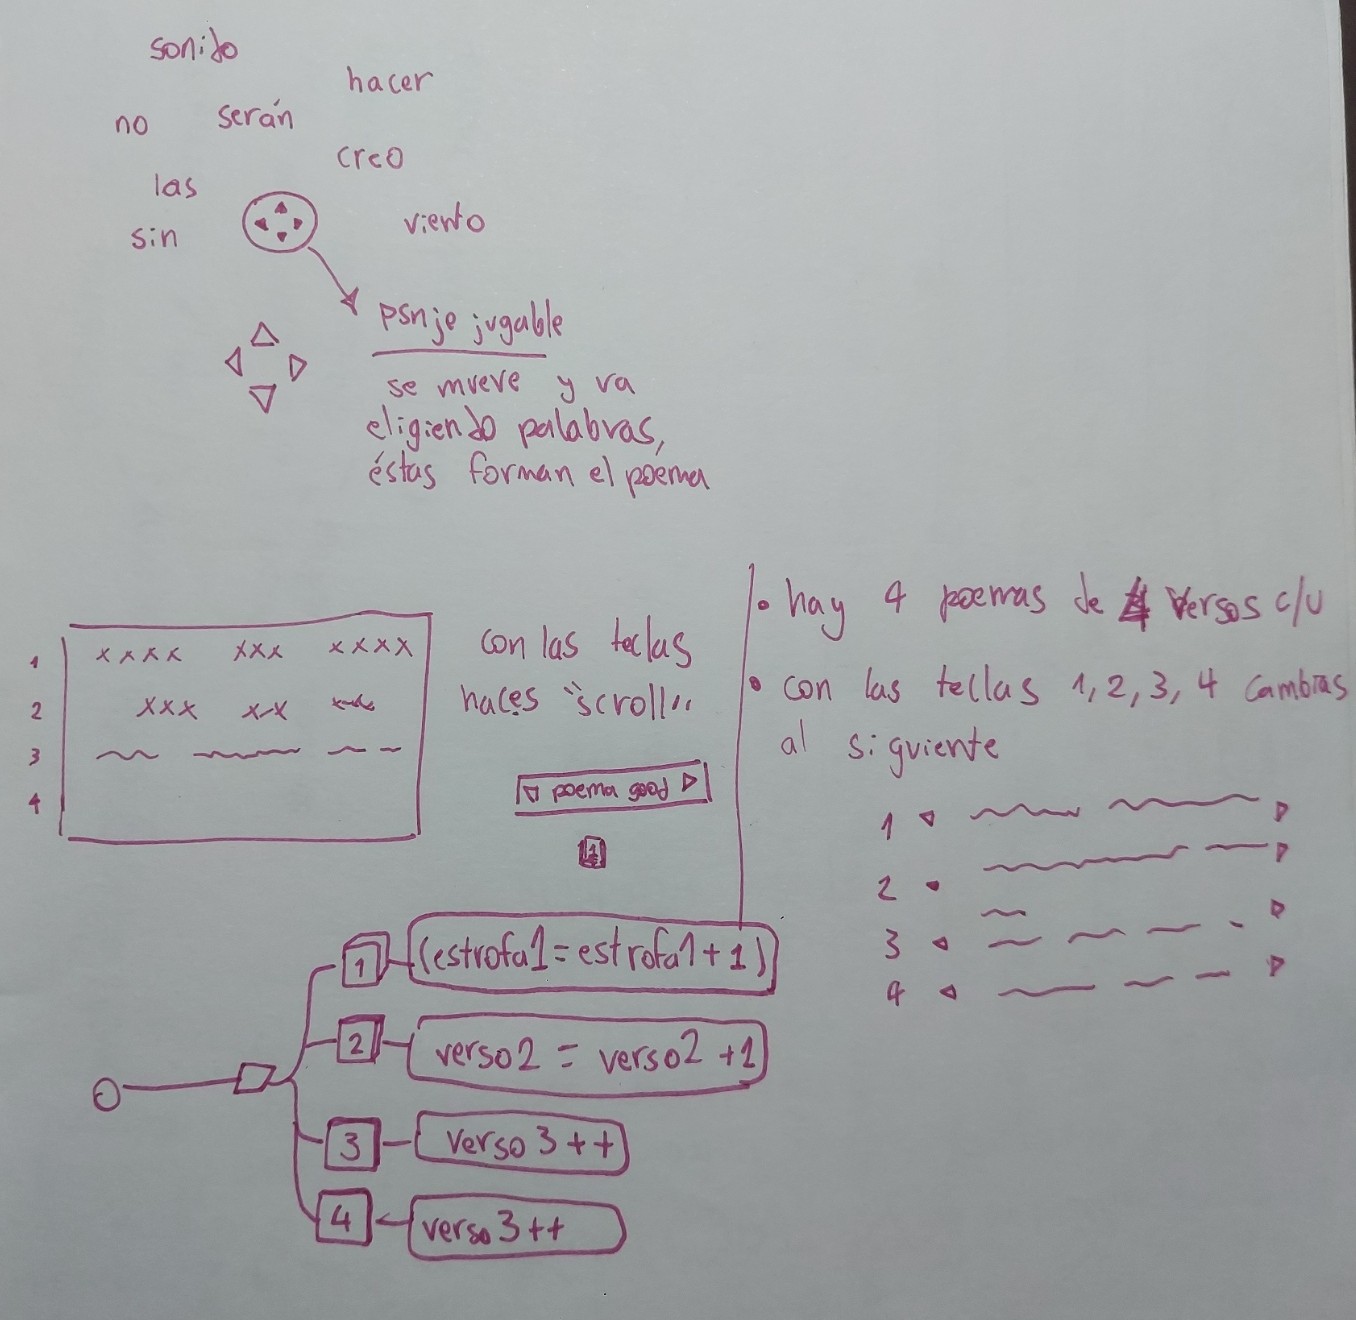 sonido
hacer
no serán
creo
las
sin viento
psnje jugable
se mueve y va
eligiendo palabras,
éstas forman el poema
1 xxxx xxx xxxx
2 xxx xx
3
4
con las teclas
haces "scroll"
poema good
1
• hay 4 poemas de 4 versos c/u
• con las tecllas 1, 2, 3, 4 cambias
al siguiente
1
2
3
4
1 (estrofa1 = estrofa1 + 1)
2 verso2 = verso2 + 1
3 verso 3 + +
4 verso 3 + +